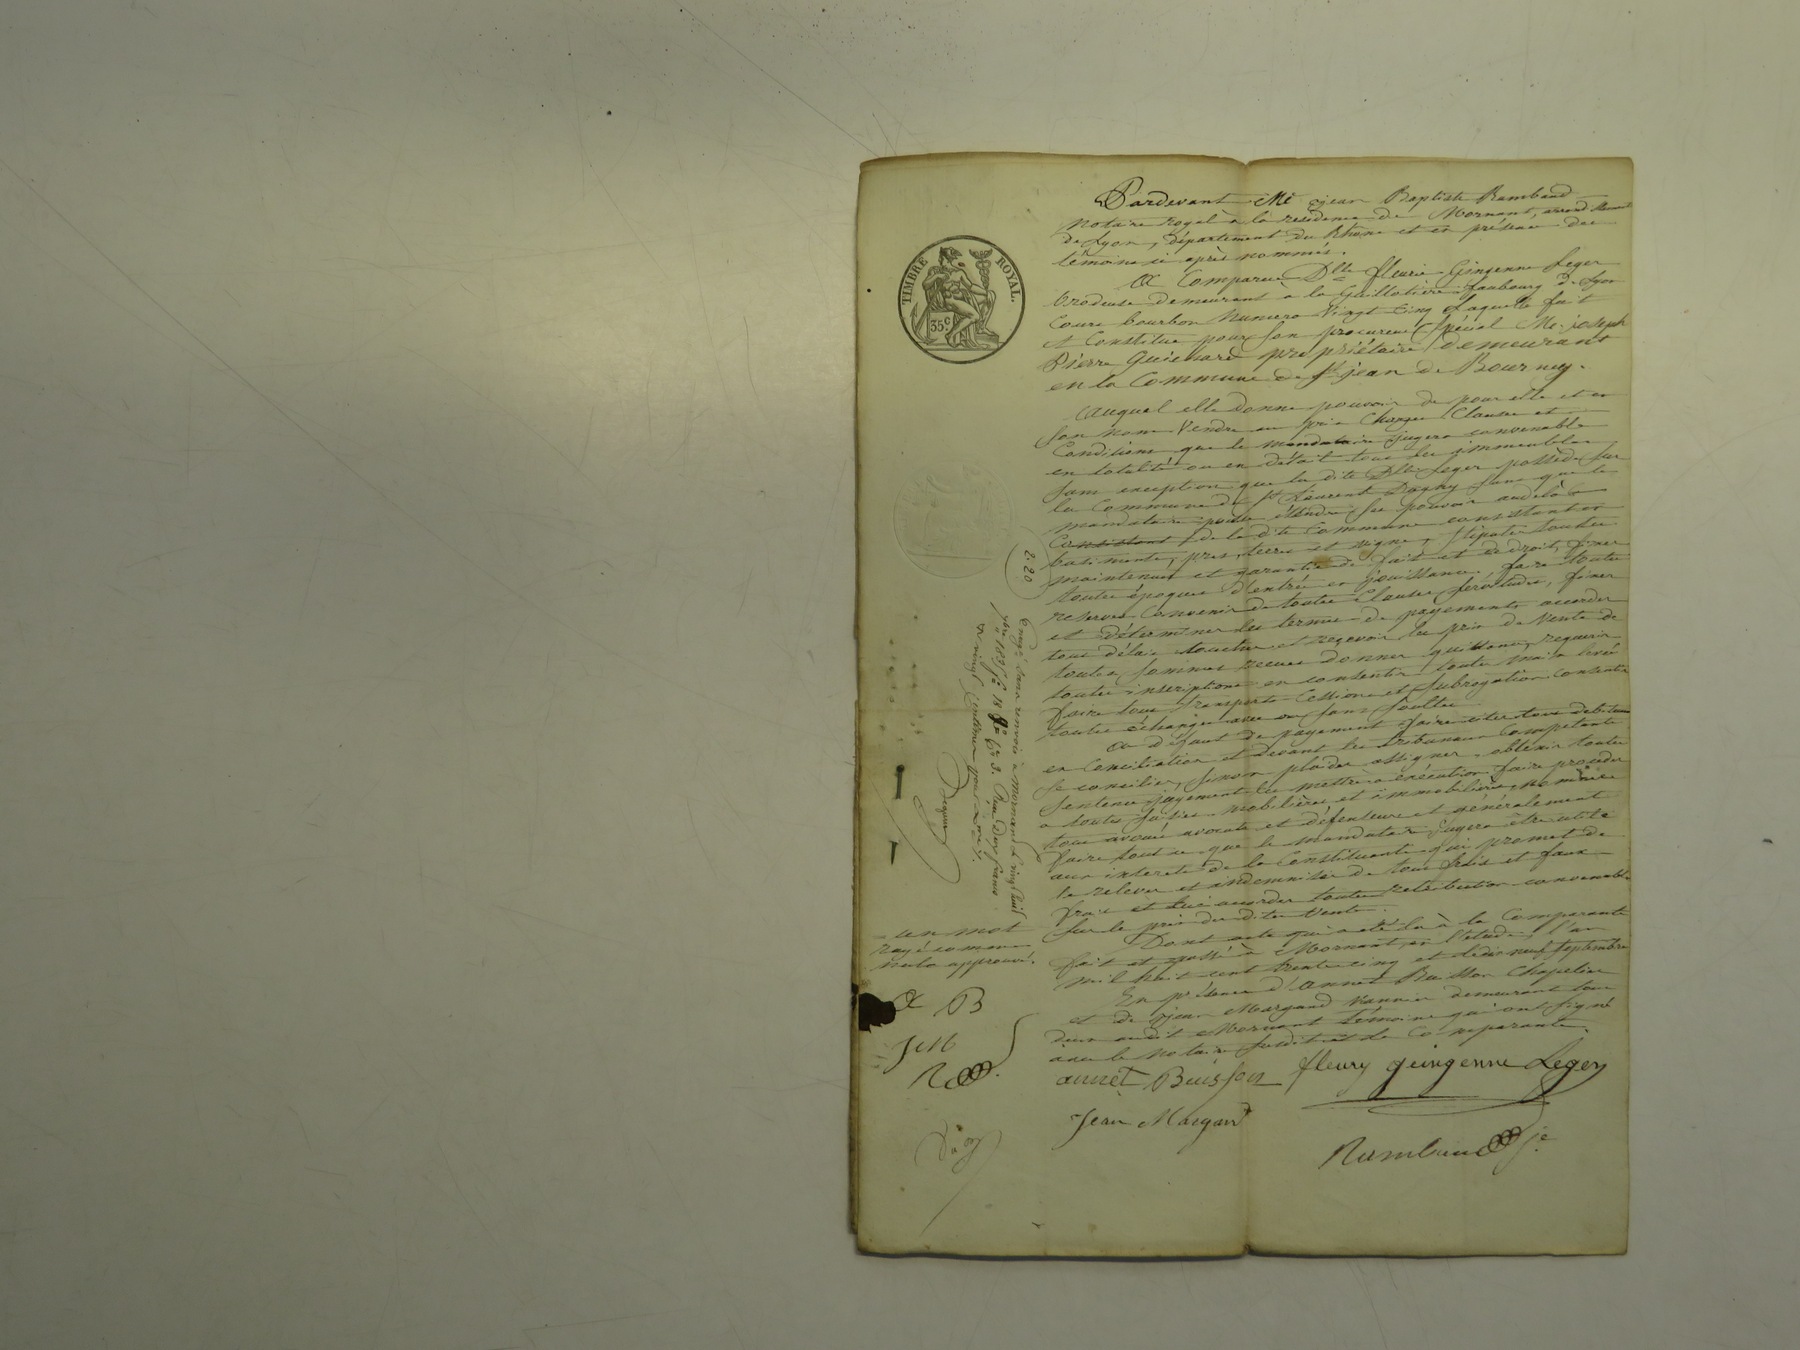 TIMBRE ROYAL.
35 c
Pardevant Me jean Baptiste Rambaud
notaire royal à la residence de Mornant, arrondissement
de Lyon, département du Rhone et en présence des
témoins ci après nommés.
A Comparu Dlle fleurie Gingenne Leger
brodeuse demeurant à la Guillotière faubourg de Lyon
Cours bourbon Numero Vingt Cinq Laquelle fait
et Constitue pour son procureur Spécial Me joseph
Pierre propriétaire demeurant
en la Commune de St jean de Bournay.
Auquel elle donne pouvoir de pour elle et en
son nom Vendre au prix Charges Clauses et
Conditions que le mandataire jugera convenable
en totalité ou en détail tous les immeubles
sans exception que la dite Dlle Leger possède sur
la Commune de St Laurent sans que le
mandataire puisse étendre ses pouvoir audela
Consistant de la dite Commune consistant en
batiments, pres, terres et vignes, Stipuler toutes
maintenues et garantie de fait et de droit, fixer
toutes époques d'entrée en jouissance, faire toutes
reserves Convenir de toutes Clauses servitudes, fixer
et déterminer les termes de payements accorder
tous délais toucher et recevoir les prix de Vente de
toutes sommes recues donner quittance, requerir
toutes inscriptions en consentir toutes main levée
faire tous transports Cessions et Subrogation Consentir
toutes échanges avec ou sans soultes
A défaut de payement faire citer tous debiteurs
en Conciliation et devant les tribunaux Compétents
se concilier, sinon plaider assigner, obtenir toutes
Sentences jugements les mettre a exécution faire proceder
a toutes saisies mobilières et immobilières, nommer
tous avoués avocats et défenseurs et généralement
faire tout ce que le mandataire jugera être utile
aux interets de la Constituante qui promet de
le relever et indemniser de tous frais et faux
frais et lui accorder toutes retribution convenable
sur le prix des dites Vente.
Dont acte qui a été lu à la Comparante
fait et passé à Mornant en l'étude, l'an
mil huit cent trente cinq et le dix neuf Septembre
En présence d'annet Buisson Chapelier
et de jean Margand Vannier demeurant tous
deux audit Mornant témoins qui ont signé
avec le notaire susdit et la Comparante.
annet Buisson fleury gingenne Leger
Jean Margand
Rambaud
2.20
Enregé sans renvoi a Mornant le vingt huit
7bre 1835 fo 18 Reçu deux francs
vingt Centimes
un mot
rayé comme
nul approuvé.
A B
JeM
R